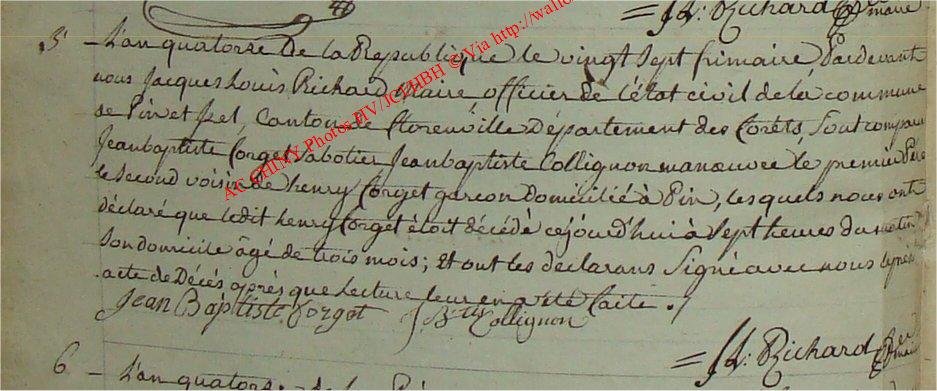 = J. L. Richard maire
5 L'an quatorse de la Republique le vingt sept frimaire Pardevant
nous Jacques Louis Richard Maire, officier de l'état civil de la commune
de Pin et Izel, Canton de florenville Département des forêts, sont comparu
Jeanbaptiste forget sabotier Jeanbaptiste Collignon manœuvre le premier Père
le second voisin de henry forget garcon domicilié à Pin, lesquels nous ont
déclaré que ledit henry forget étoit décédé cejourd'hui à sept heures du matin
son domicile âgé de trois mois; Et ont les déclarans signé avec nous le présent
acte de Décés après que Lecture leur en a été faite ./
Jean Baptiste forget J Btte Collignon
= J. L. Richard
maire
6 L'an quatorse de la Ré
AC CHINY Photos PIV/JCT/HBH © Via http://wallo